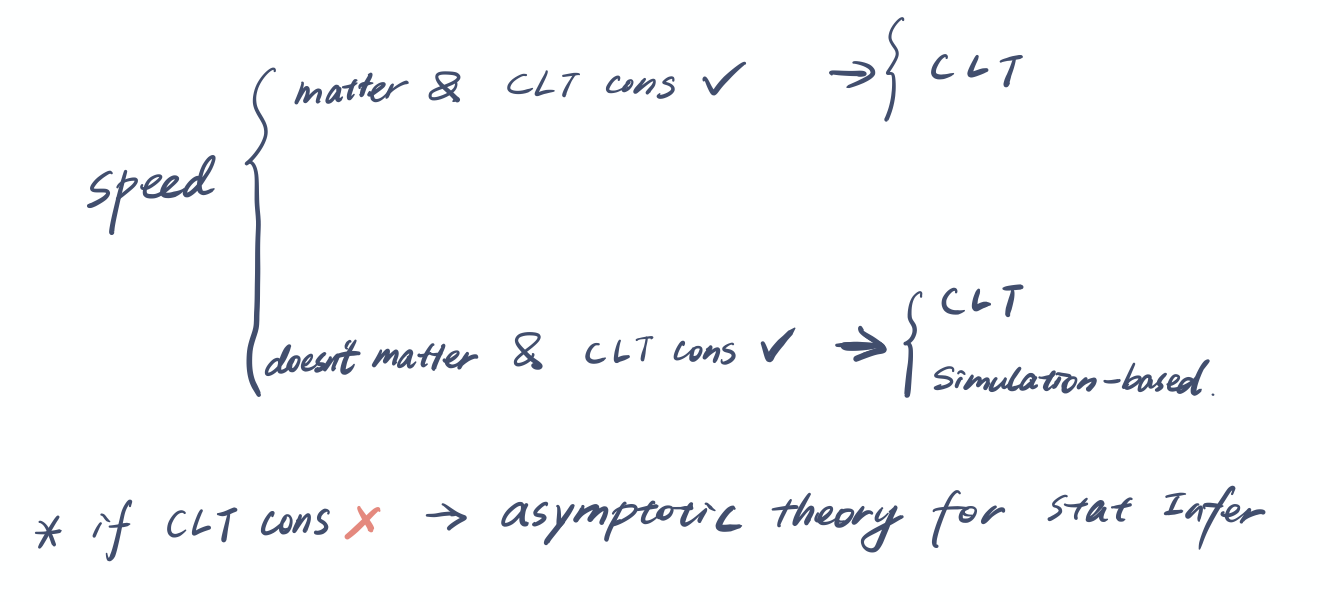 matter & CLT cons ✓ → { CLT
speed {
doesn't matter & CLT cons ✓ → { CLT
Simulation-based.
* if CLT cons ✗ → asymptotic theory for stat Infer